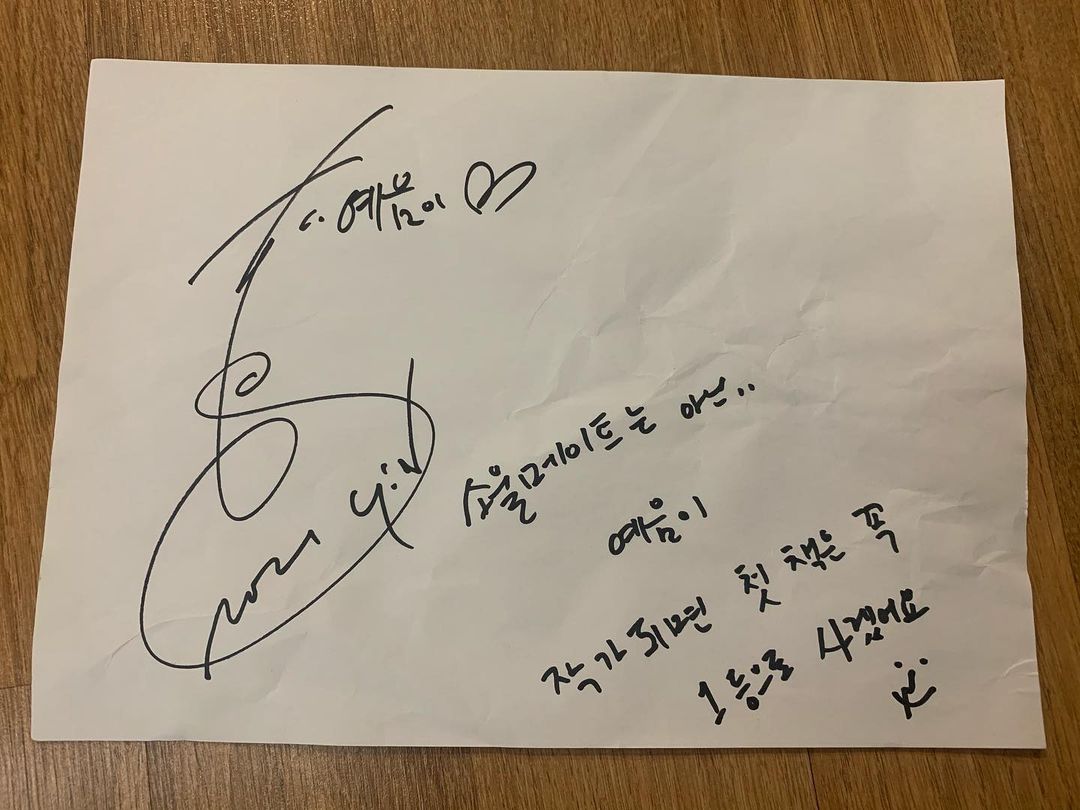 To. 예음이 ♡
소울메이트는 아닌..
예음이
작가 되면 첫 책은 꼭
1등으로 사겠어요